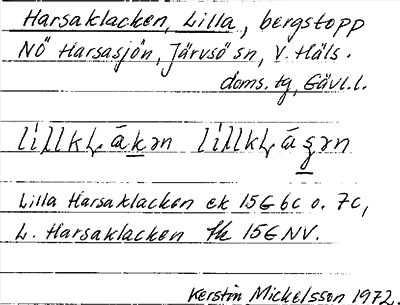 Harsaklacken, Lilla, bergstopp
NÖ Harsasjön, Järvsö sn, V. Häls.
doms. tg, Gävl.l.
Lilla Harsaklacken ek 15G 6c o. 7c,
L. Harsaklacken tk 15G NV.
Kerstin Mickelsson 1972.